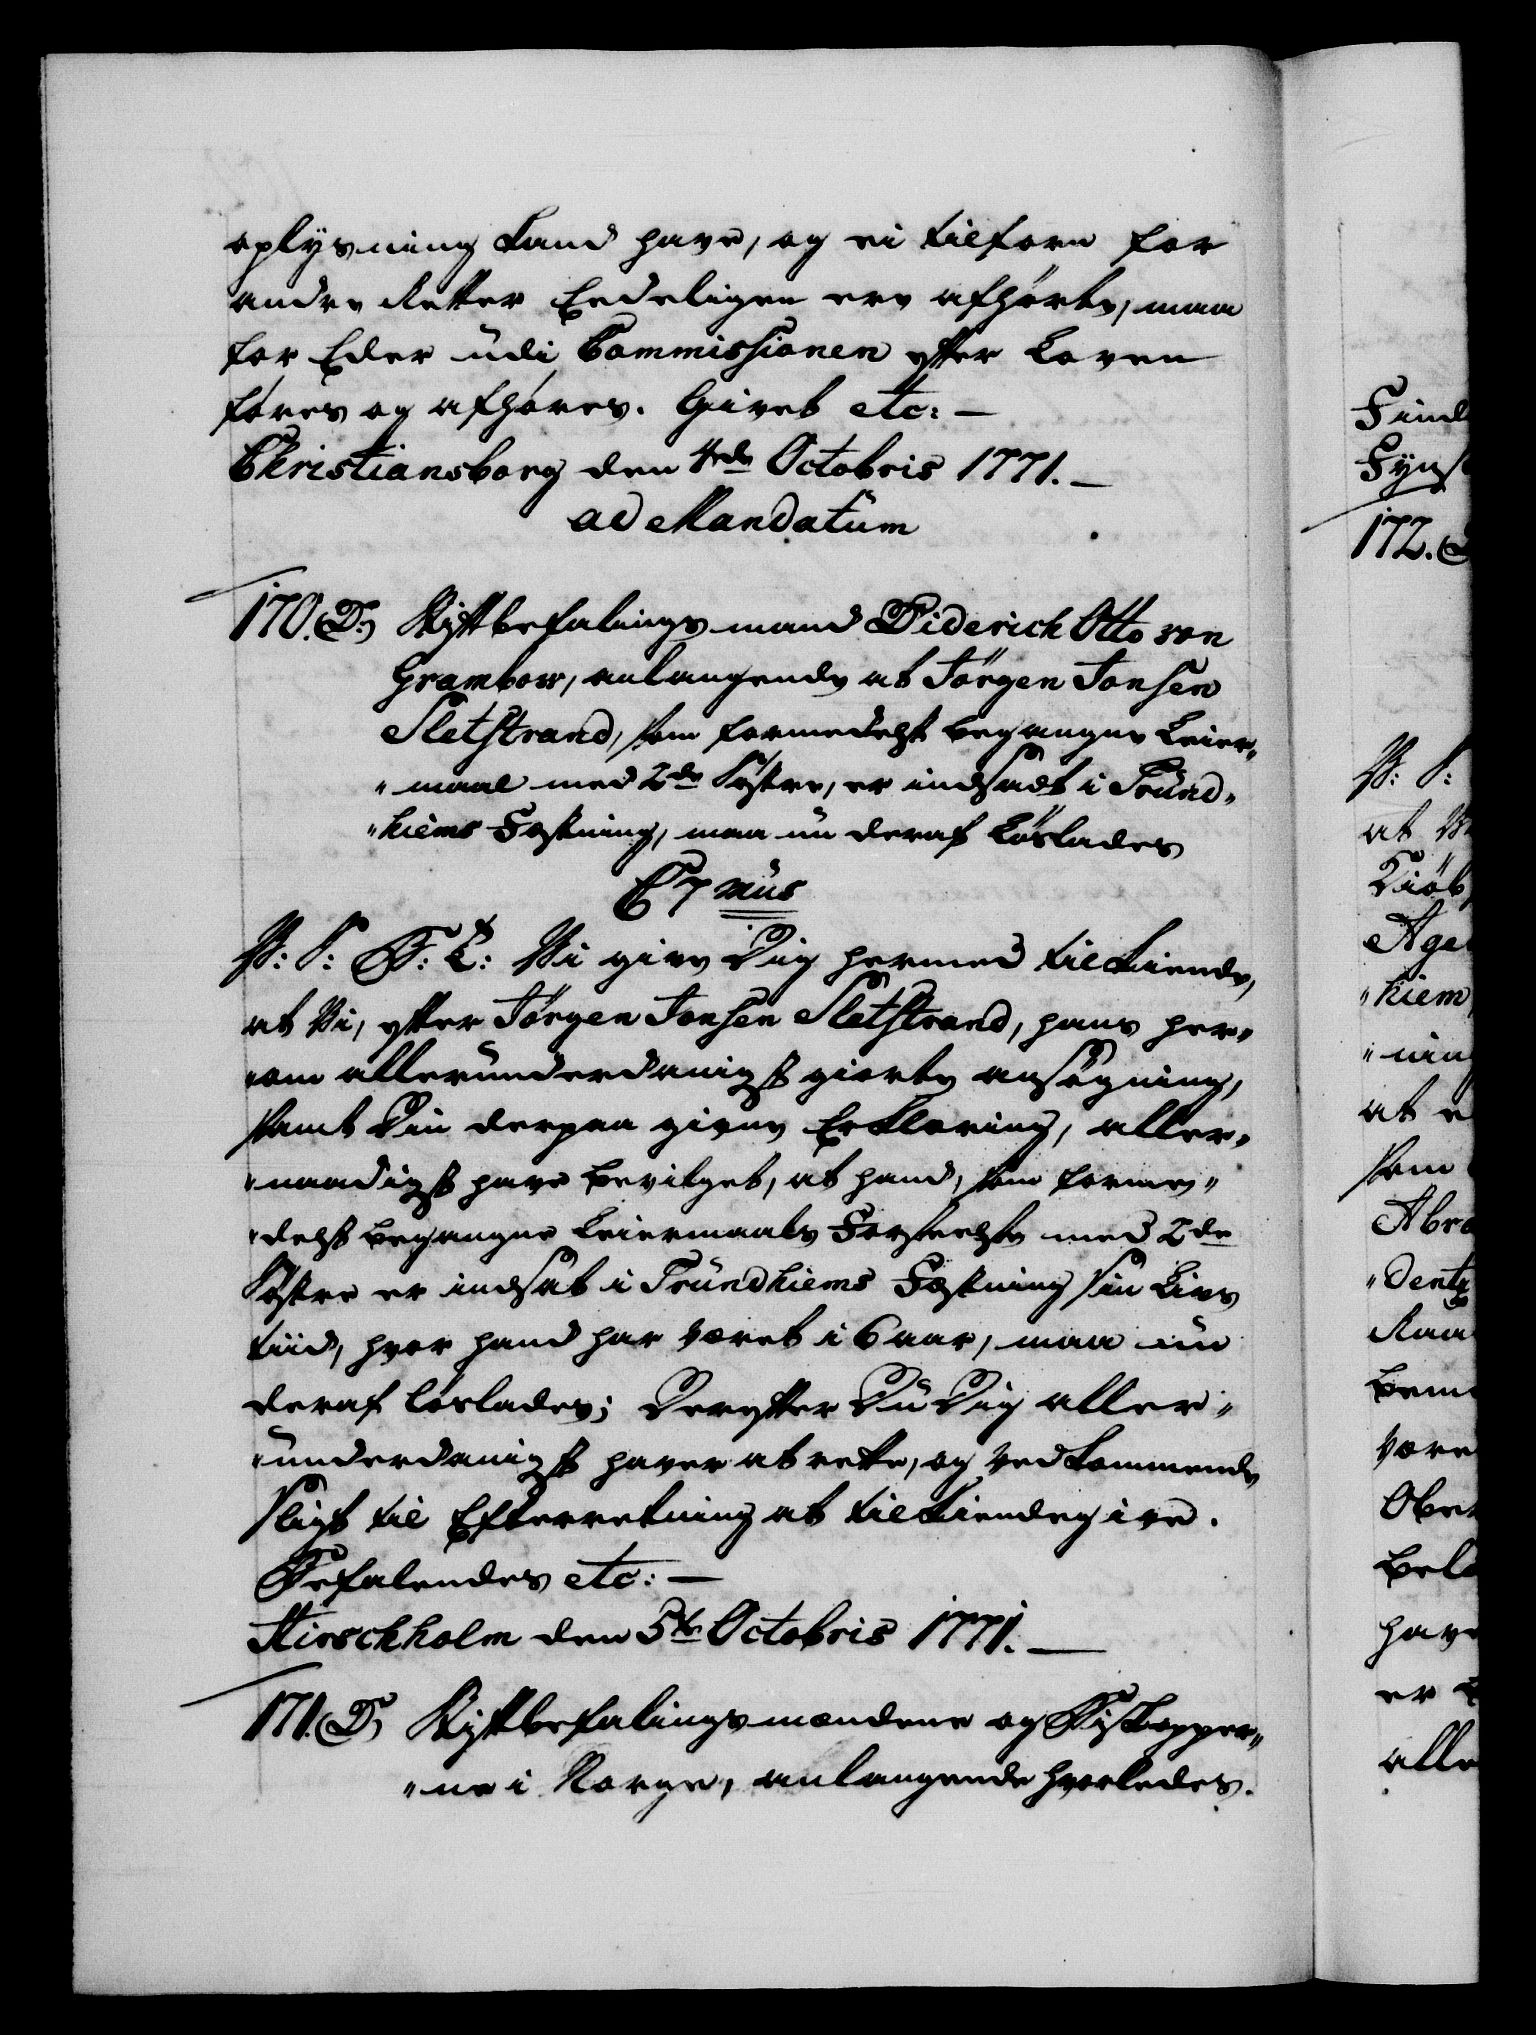 oplysning kand have, og ei tilforn for
andre Retter Eedeligen ere afhørte, maa
for Eder udi Commissionen efter Loven
føres og afhøres. Givet etc: —
Christiansborg den 4de Octobris 1771. —
ad Mandatum
170. D. Stiftbefalingsmand Diderich Otto von
Grambow, anlangende at Jörgen Jonsen
Sletstrand, som formedelst begangne Leier„
„maal med 2de Søstre, er indsadt i Trund„
„hiems Fæstning, maa nu deraf Løslades
C 7mus
V: S: G: T: Vi give Dig hermed tilkiende,
at Vi, efter Jörgen Jonsen Sletstrand, hans her„
„om allerunderdanigst giorte ansøgning,
samt Din derpaa givne Erklæring, aller„
„naadigst have bevilget, at hand, som forme„
„delst begangne Leiermaals Forseelse med 2de
Søstre er indsat i Trundhiems Fæstning sin Livs
tiid, hvor hand har været i 6 aar, maa nu
deraf løslades; Derefter Du Dig aller„
„underdanigst haver at rette, og vedkommende
sligt til Efterretning at tilkiendegive.
Befalendes etc: —
Hirschholm den 5te Octobris 1771. —
171. D. Stiftbefalingsmændene og Biskopper„
„ne i Norge, anlangende hvorledes.
172.